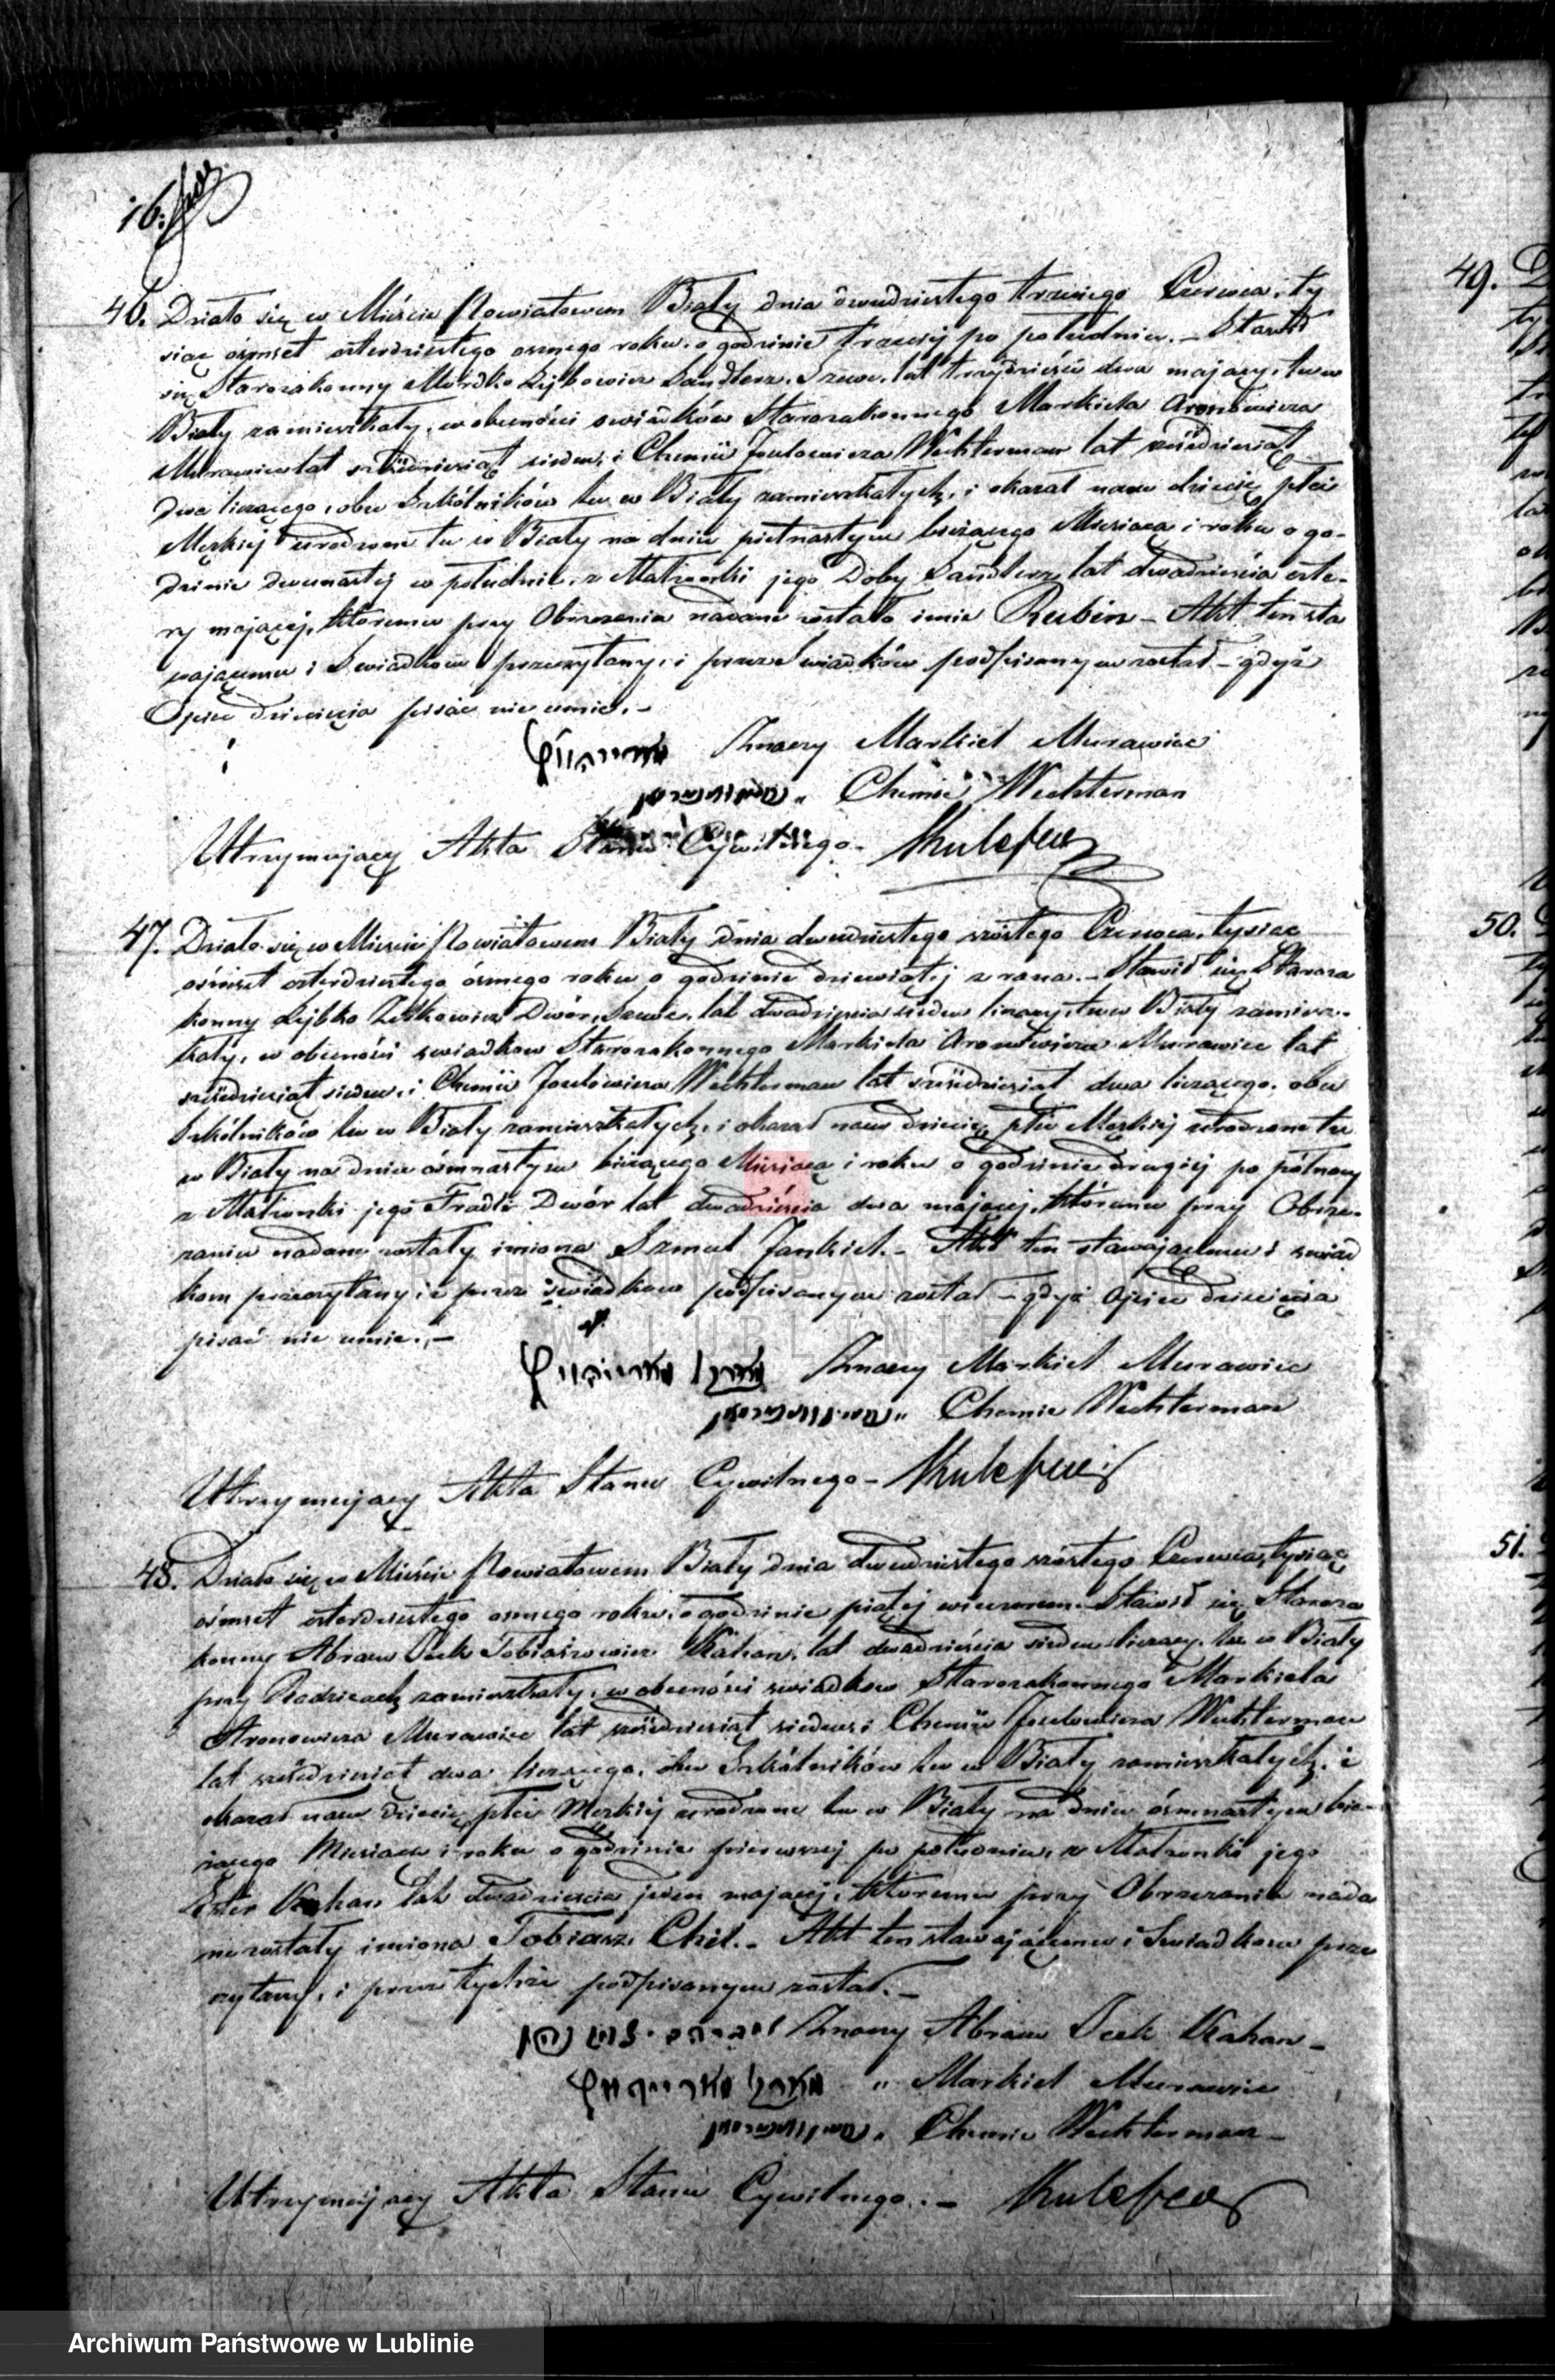 16.
46. Działo się w Mieście Powiatowem Biały dnia dwudziestego trzeciego Czerwca, ty
siąc ośmset czterdziestego osmego roku, o godzinie trzeciej po południu. – Stawił
się Starozakonny Mordko Lejbowicz Sandlerz, Szewc, lat trzydzieści dwa mający, tu w
Biały zamieszkały, w obecności swiadków Starozakonnego Markiela Aronowicza
Murawiec lat sześćdziesiąt siedm, i Chemii Joselowicza Wechterman lat sześćdziesiąt
dwa liczącego, obu Szkólników tu w Biały zamieszkałych, i okazał nam dziecię płci
Męzkiej urodzone tu w Biały na dniu pietnastym bieżącego Miesiąca i roku o go-
dzinie dwunastej w południe, z Małżonki jego Doby Sandlerz lat dwadzieścia czte-
ry mającej, któremu przy Obrzezaniu nadane zostało imie Rubin – Akt ten sta
wającemu i Swiadkom przeczytany, i przez Swiadków podpisanym został – gdyż
Ojciec dziecięcia pisać nie umie. –
Znaczy Markiel Murawiec
" Chemie Wechterman
Utrzymujący Akta Stanu Cywilnego –
47. Działo się w Mieście Powiatowem Biały dnia dwudziestego szóstego Czerwca, tysiąc
ośmset czterdziestego ósmego roku o godzinie dziewiątej z rana. – Stawił się Staroza
konny Lejbko Zelkowicz Dwór, Szewc, lat dwadzieścia siedm liczący, tu w Biały zamiesz-
kały, w obecności swiadkow Starozakonnego Markiela Aronowicza Murawiec lat
sześćdziesiąt siedm, i Chemii Joselowicza Wechterman lat sześćdziesiąt dwa liczącego, obu
Szkólników tu w Biały zamieszkałych, i okazał nam dziecię płci Męzkiej urodzone tu
w Biały na dniu ósmnastym bieżącego Miesiąca i roku o godzinie drugiej po północy
z Małżonki jego Fradli Dwór lat dwadzieścia dwa mającej, któremu przy Obrze-
zaniu nadane zostały imiona Szmul Jankiel. – Akt ten stawającemu i swiad
kom przeczytany i przez swiadkow podpisanym został – gdyż Ojciec dziecięcia
pisać nie umie. –
Znaczy Markiel Murawiec
" Chemie Wechterman
Utrzymujący Akta Stanu Cywilnego –
48. Działo się w Mieście Powiatowem Biały dnia dwudziestego szóstego Czerwca, tysiąc
ośmset czterdziestego osmego roku, o godzinie piątej wieczorem. Stawił się Staroza
konny Abram Icek Tobiaszowicz Kahan, lat dwadzieścia siedm liczący, tu w Biały
przy Rodzicach zamieszkały, w obecności swiadkow Starozakonnego Markiela
Aronowicza Murawiec lat sześćdziesiąt siedm, i Chemii Joselowicza Wechterman
lat sześćdziesiąt dwa liczącego, obu Szkólników tu w Biały zamieszkałych, i
okazał nam dziecię płci Męzkiej urodzone tu w Biały na dniu ósmnastym bie-
żącego Miesiąca i roku o godzinie pierwszej po południu, z Małżonki jego
Ester Kahan lat dwadzieścia jeden mającej, któremu przy Obrzezaniu nada
ne zostały imiona Tobiasz Chil. – Akt ten stawającemu i Swiadkom prze
czytany, i przez tychże podpisanym został. –
Znaczy Abram Icek Kahan –
" Markiel Murawiec
" Chemie Wechterman –
Utrzymujący Akta Stanu Cywilnego. –
49.
50.
51.
ARCHIWUM PAŃSTWOWE
W LUBLINIE
Archiwum Państwowe w Lublinie